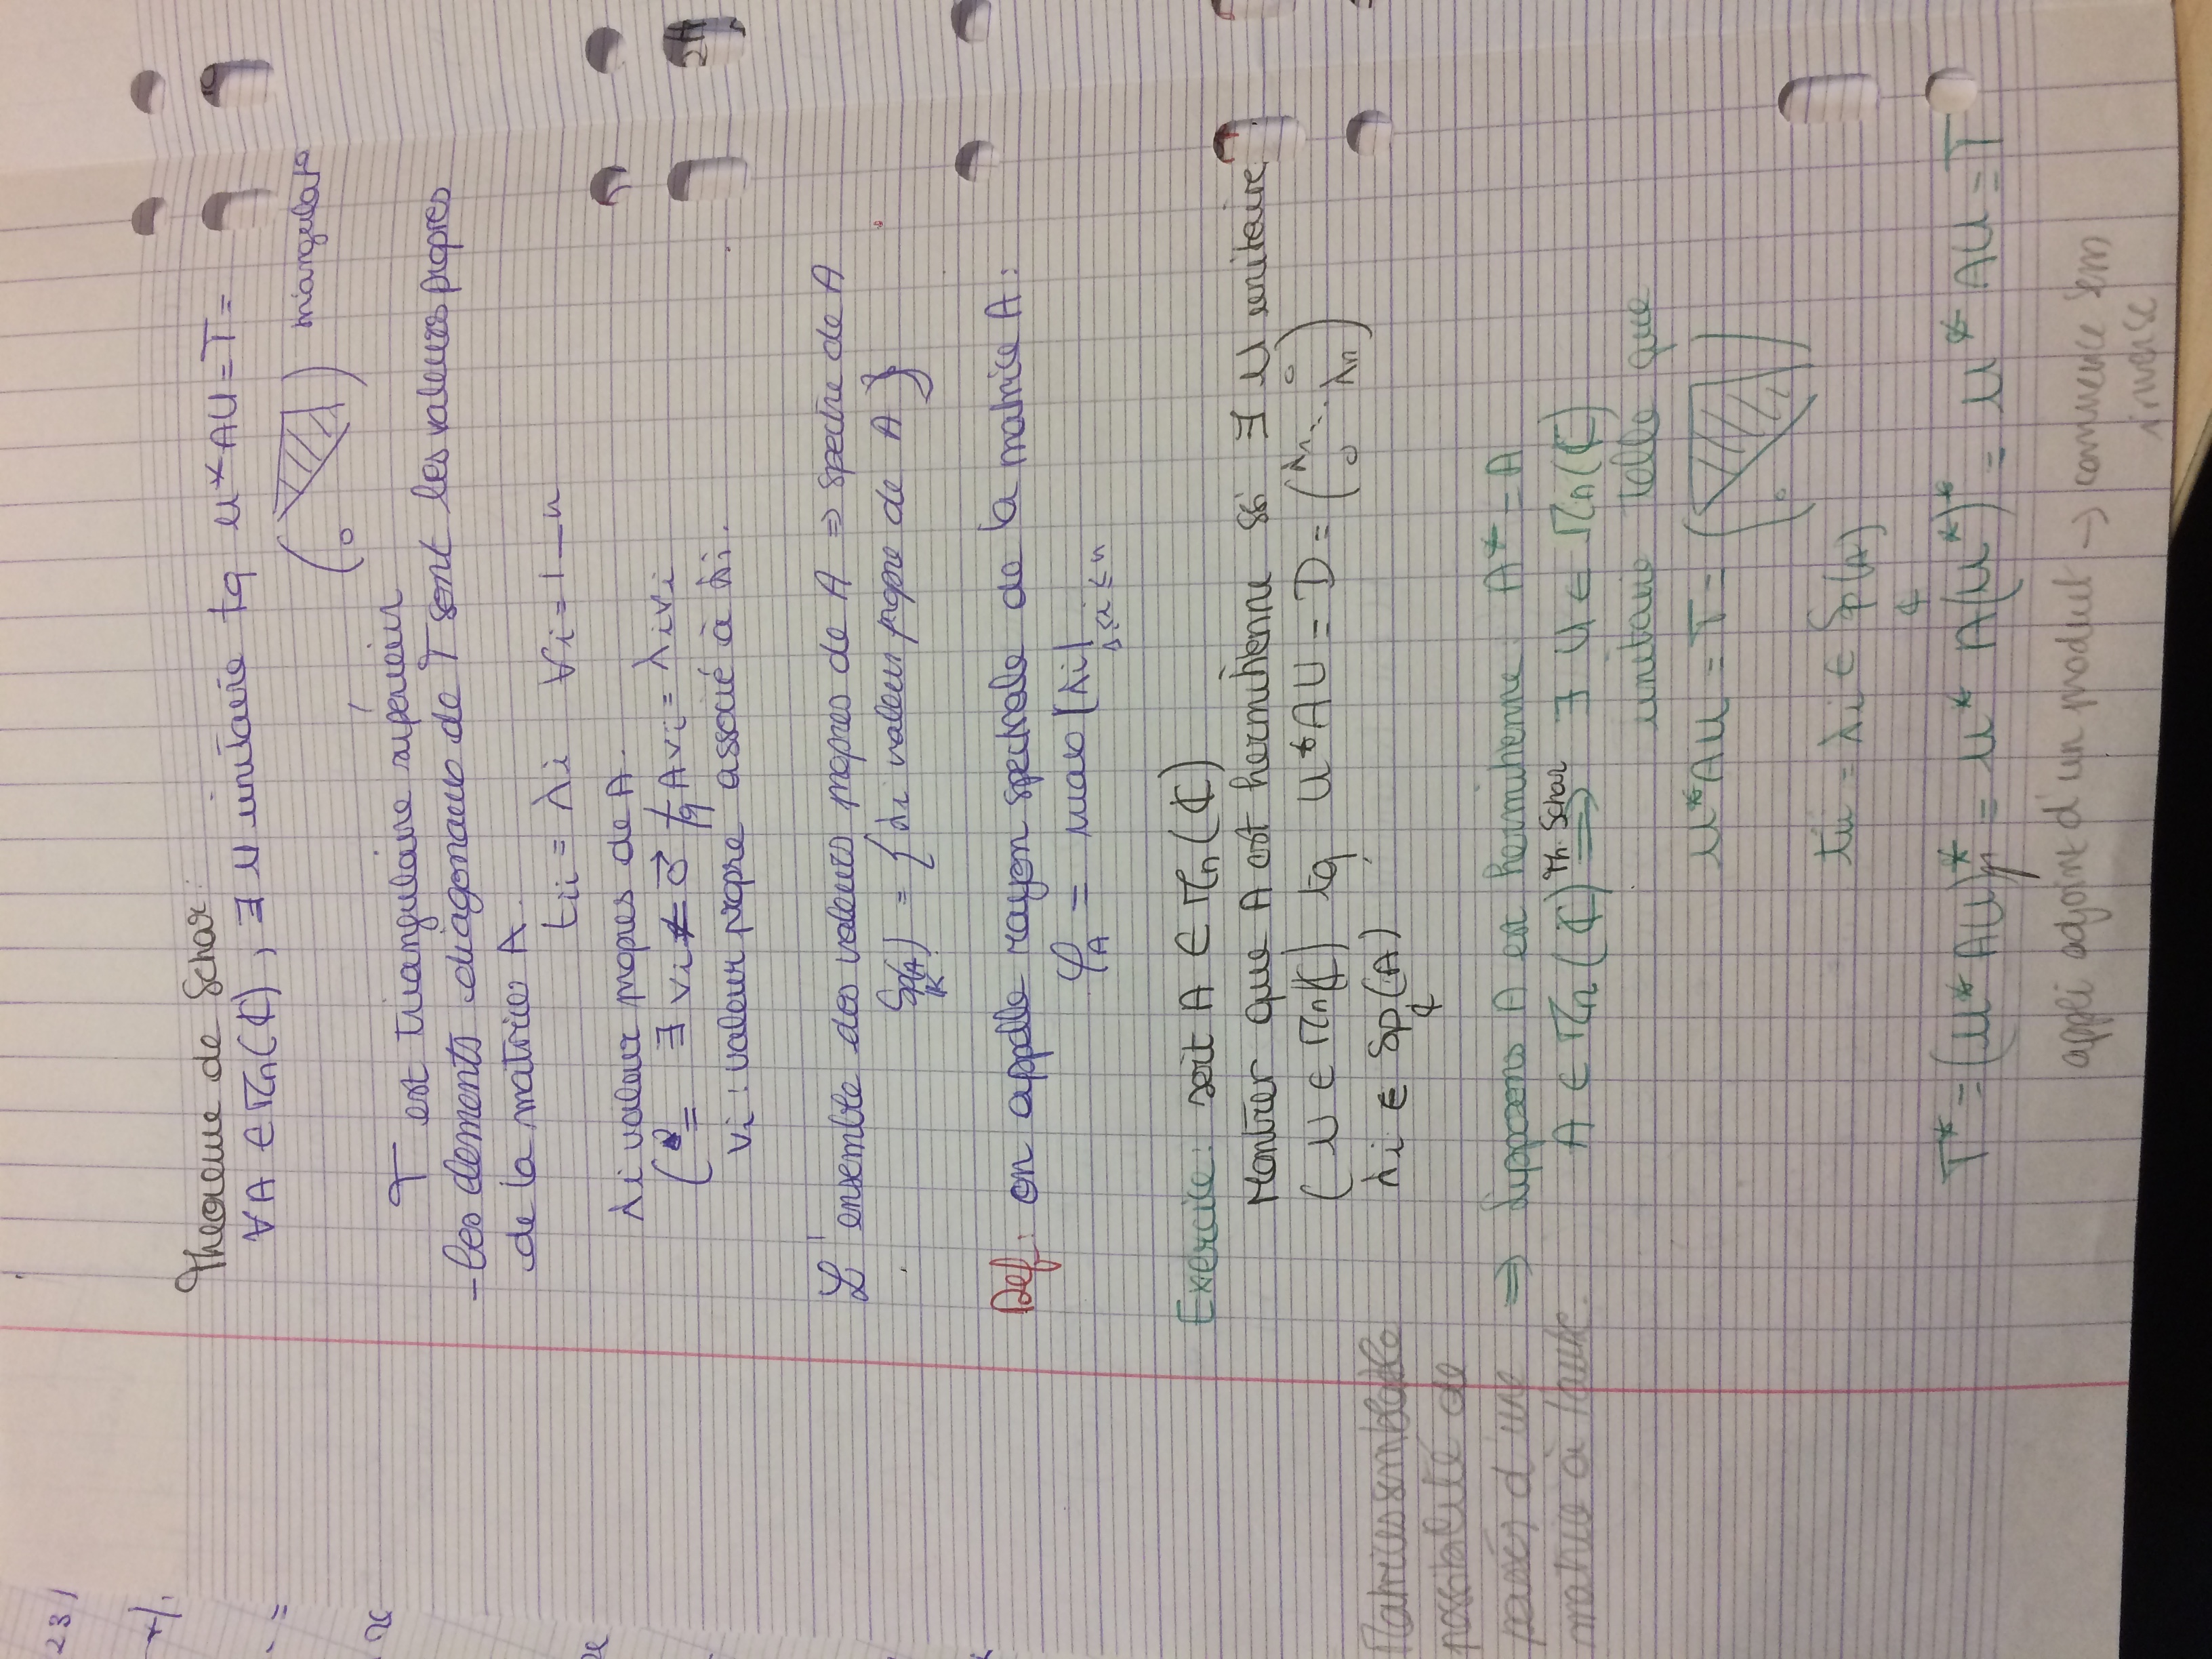 231
Théoreme de Schar :
∀A ∈ Mn(ℂ), ∃ U unitaire tq U*AU = T =
( 0 ) triangulaire
T est triangulaire supérieur
- les elements diagonaux de T sont les valeurs propres
de la matrice A.
tii = λi ∀i = 1 _ n
λi valeur propres de A.
∃ vi ≠ 0⃗ tq Avi = λivi
vi : valeur propre associé à λi.
L'ensemble des valeurs propres de A ⇒ spectre de A
Sp(A) = { λi valeur propre de A }
K
Def : on appelle rayon spectrale de la matrice A :
φA = max |λi|
1≤i≤n
Exercice : soit A ∈ Mn(ℂ)
Montrer que A est hermitienne ssi ∃ U unitaire
(U ∈ Mn(ℂ) tq U*AU = D = (λ1 . . 0
0 λn)
λi ∈ Sp(A)
ℂ
Matrice semblable
possibilité de
passer d'une
matrice à l'autre.
⇒ Supposons A est hermitienne : A* = A
A ∈ Mn(ℂ) Th. Schar ⟹ ∃ U ∈ Mn(ℂ)
unitaire telle que
U*AU = T = ( 0 )
tii = λi ∈ Sp(A)
ℂ
T* = (U*AU)* = U* A(U*)* = U* AU = T
appli adjoint d'un produit → commence sens
inverse